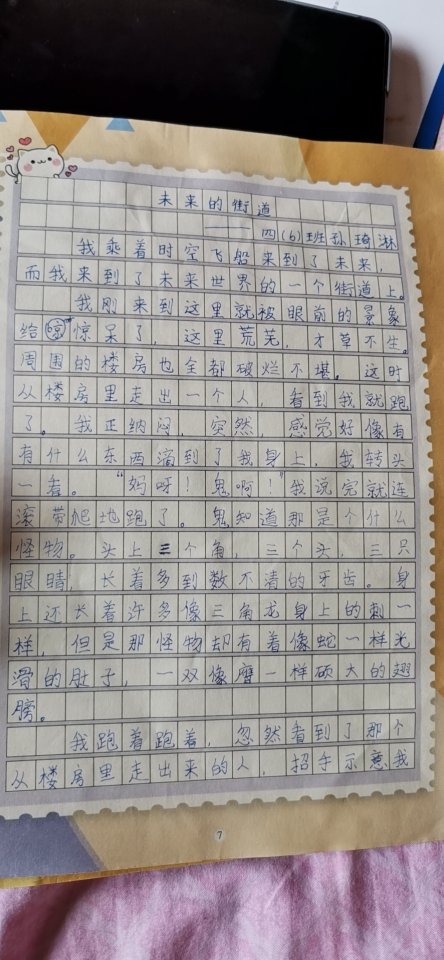 未来的街道
四(6)班孙琦淋
我乘着时空飞船来到了未来，
而我来到了未来世界的一个街道上。
我刚来到这里就被眼前的景象
给惊呆了，这里荒芜，才草不生。
周围的楼房也全都破烂不堪。这时
从楼房里走出一个人，看到我就跑
了。我正纳闷，突然，感觉好像有
有什么东西滴到了我身上，我转头
一看。“妈呀！鬼啊！”我说完就连
滚带爬地跑了。鬼知道那是个什么
怪物。头上三个角，三个头，三只
眼睛，长着多到数不清的牙齿。身
上还长着许多像三角龙身上的刺一
样，但是那怪物却有着像蛇一样光
滑的肚子，一双像鹰一样硕大的翅
膀。
我跑着跑着，忽然看到了那个
从楼房里走出来的人，招手示意我
7